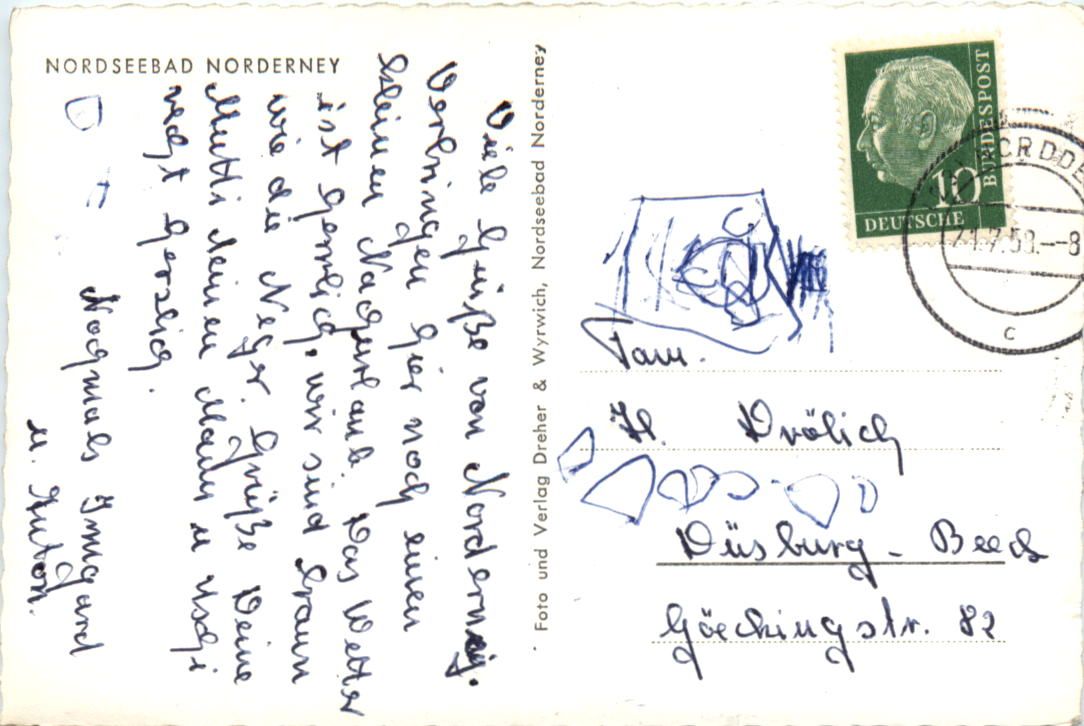 NORDSEEBAD NORDERNEY
Viele Grüße von Norderney.
Verbringen hier noch einen
kleinen Nachurlaub. Das Wetter
ist herrlich, wir sind braun
wie die Neger. Grüße Deine
Mutti deinen Mann u Uschi
recht herzlich.
Nochmals Irmgard
u. Anton.
Foto und Verlag Dreher & Wyrwich, Nordseebad Norderney
DEUTSCHE
BUNDESPOST
10
C
Fam.
H. Drölich
Düsburg - Beeck
Göeckingstr. 82